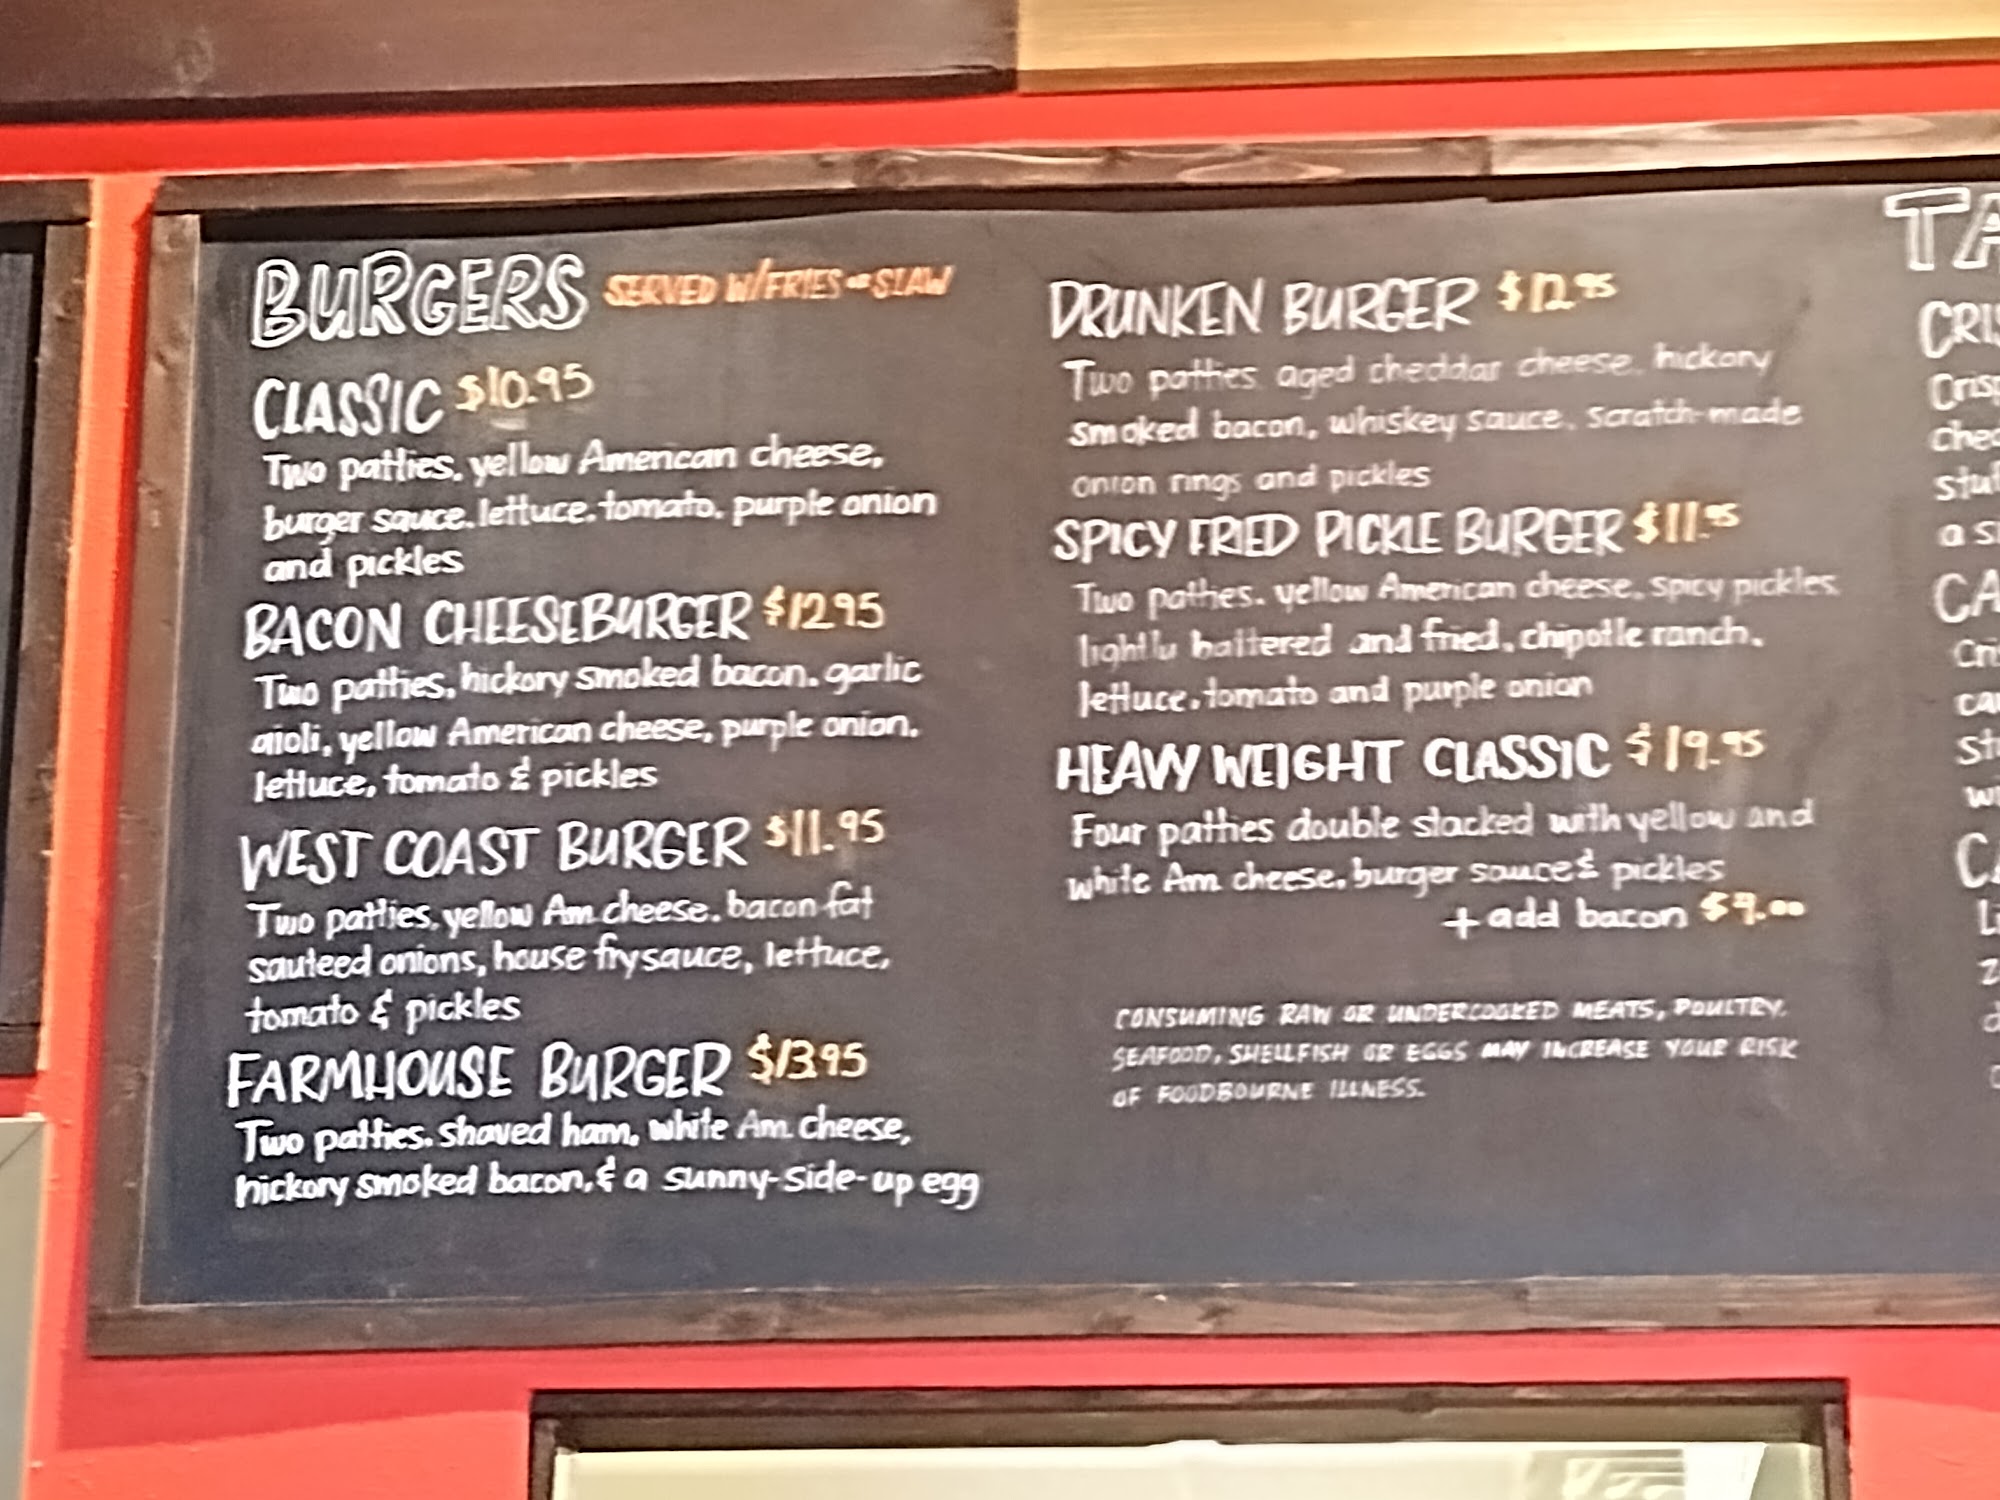 BURGERS SERVED W/FRIES or SLAW
CLASSIC $10.95
Two patties, yellow American cheese,
burger sauce, lettuce, tomato, purple onion
and pickles
BACON CHEESEBURGER $12.95
Two patties, hickory smoked bacon, garlic
aioli, yellow American cheese, purple onion,
lettuce, tomato & pickles
WEST COAST BURGER $11.95
Two patties, yellow Am cheese, bacon fat
sauteed onions, house fry sauce, lettuce,
tomato & pickles
FARMHOUSE BURGER $13.95
Two patties, shaved ham, white Am. cheese,
hickory smoked bacon, & a sunny-side-up egg
DRUNKEN BURGER $12.95
Two patties, aged cheddar cheese, hickory
smoked bacon, whiskey sauce, scratch-made
onion rings and pickles
SPICY FRIED PICKLE BURGER $11.95
Two patties, yellow American cheese, spicy pickles
lightly battered and fried, chipotle ranch,
lettuce, tomato and purple onion
HEAVY WEIGHT CLASSIC $19.95
Four patties double stacked with yellow and
white Am. cheese, burger sauce & pickles
+ add bacon
CONSUMING RAW OR UNDERCOOKED MEATS, POULTRY,
SEAFOOD, SHELLFISH OR EGGS MAY INCREASE YOUR RISK
OF FOODBOURNE ILLNESS.